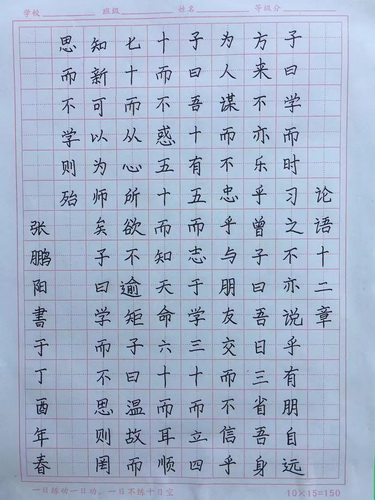 学校 班级 姓名 等级分
论语十二章
子曰学而时习之不亦说乎有朋自远
方来不亦乐乎曾子曰吾日三省吾身
为人谋而不忠乎与朋友交而不信乎
子曰吾十有五而志于学三十而立四
十而不惑五十而知天命六十而耳顺
七十而从心所欲不逾矩子曰温故而
知新可以为师矣子曰学而不思则罔
思而不学则殆
张鹏阳書于丁酉年春
一日练功一日功、一日不练十日空 10×15=150